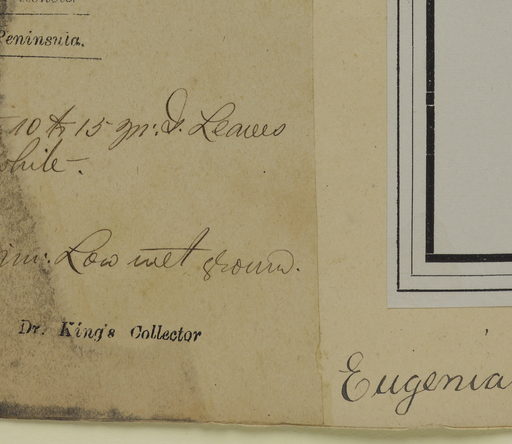 Peninsula.
10 to 15
Leaves
while.
Low wet ground.
Dr. King's Collector
Eugenia